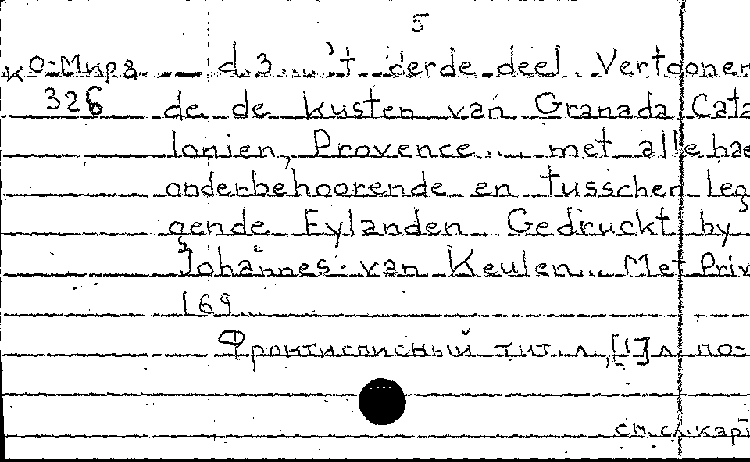 5
КО-Мира d.3... 't derde deel. Vertoonen
326 de de kusten van Granada Cata
lonien, Provence... met alle hae
onderbehoorende en tusschen leg
gende Eylanden Gedruckt by
Johannes van Keulen... Met Priv
169
Фронтисписный тит. л., [1] л по-
см. сл. карт